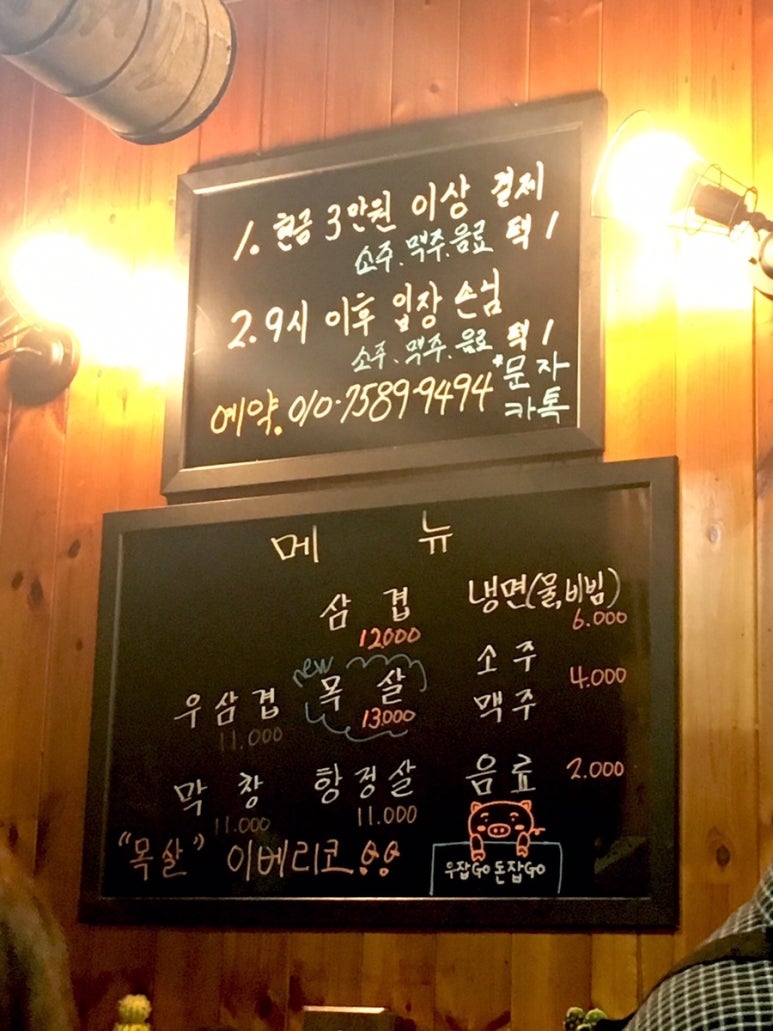 1. 현금 3만원 이상 결제
소주.맥주.음료 택1
2. 9시 이후 입장 손님
소주.맥주.음료 택1
예약. 010-7589-9494 *문자
카톡
메 뉴
삼 겹
12.000
냉면(물,비빔)
6.000
new
우삼겹
11.000
목 살
13.000
소주
맥주
4.000
막 창
11.000
항정살
11.000
음료 2.000
"목살" 이베리코
우잡GO 돈잡GO